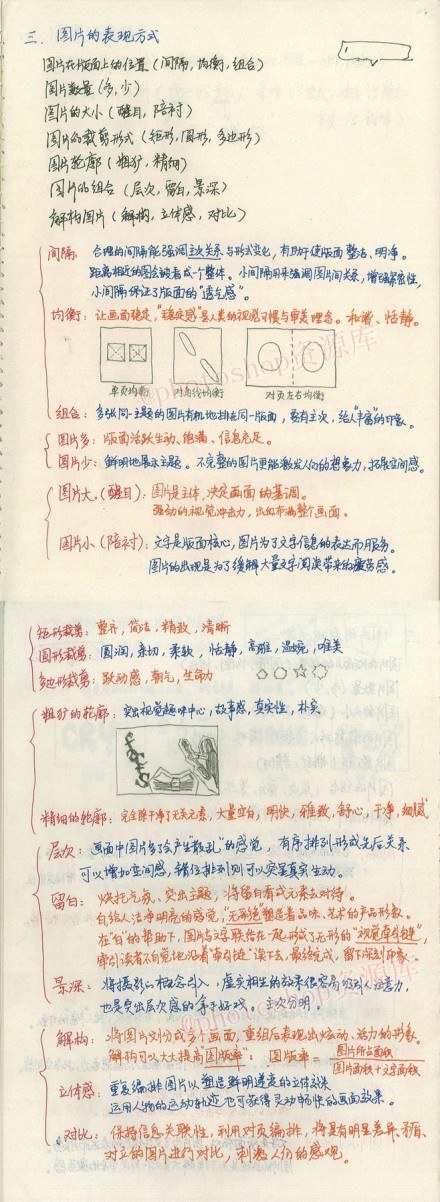 三、图片的表现方式
图片在版面上的位置（间隔，均衡，组合）
图片数量（多，少）
图片的大小（醒目，陪衬）
图片的裁剪形式（矩形，圆形，多边形）
图片轮廓（粗犷，精细）
图片的组合（层次，留白，景深）
解构图片（解构，立体感，对比）
间隔：合理的间隔能强调主次关系与形式变化，有助于使版面整洁、明净。
距离相近的图会被看成一个整体。小间隔用来强调图片间关系，增强紧密性，
小间隔保证了版面的"透气感"。
均衡：让画面稳定，"稳定感"是人类的视觉习惯与审美理念。和谐、恬静。
单页均衡 对角线均衡 对页左右均衡
©photoshop资源库
组合：多张同一主题的图片有机地排在同一版面，要有主次，给人"丰富"的印象。
图片多：版面活跃生动、饱满、信息充足。
图片少：鲜明地展示主题。不完整的图片更能激发人们的想象力，拓展空间感。
图片大（醒目）：图片是主体，决定画面的基调。
强劲的视觉冲击力，出血布满整个画面。
图片小（陪衬）：文字是版面核心，图片为了文字信息的表达而服务。
图片的出现是为了缓解大量文字阅读带来的疲劳感。
矩形裁剪：整齐，简洁，精致，清晰
圆形裁剪：圆润，亲切，柔软，恬静，高雅，温婉，唯美
多边形裁剪：跃动感，朝气，生命力
粗犷的轮廓：突出视觉趣味中心，故事感，真实性，朴实
精细的轮廓：完全除干净了无关元素，大量空白，明快，雅致，舒心，干净，细腻
层次：画面中图片多会产生"散乱"的感觉，有序排列形成先后关系
可以增加空间感，错位排列则可以突显真实生动。
留白：烘托气氛、突出主题，将留白看成元素去对待。
白给人洁净明亮的感觉，"无形"地塑造着品味、艺术的产品形象。
在"白"的帮助下，图片与文字联结在一起形成了无形的"视觉牵引链"，
牵引读者不自觉地沿着"牵引链"读下去，最终完成，留下深刻印象。
景深：将摄影的概念引入，虚实相生的效果很容易吸引人注意力，
也是突出层次感的拿手好戏，主次分明。
©photoshop资源库
解构：将图片划分成多个画面，重组后表现出炫动、活力的形象。
解构可以大大提高图版率。 图版率＝图片所占面积
图片面积＋文字面积
立体感：重复编排图片以塑造鲜明进度的立体效果
运用人物的运动轨迹也可获得灵动畅快的画面效果。
对比：保持信息关联性，利用对页编排，将具有明显差异、矛盾、
对立的图片进行对比，刺激人们的感观。